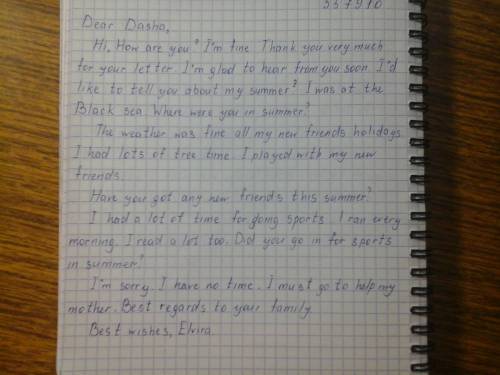 337910
Dear Dasha,
Hi. How are you? I'm fine. Thank you very much
for your letter. I'm glad to hear from you soon. I'd
like to tell you about my summer? I was at the
Black sea. Where were you in summer?
The weather was fine all my new friends holidays.
I had lots of free time. I played with my new
friends.
Have you got any new friends this summer?
I had a lot of time for going sports. I ran every
morning. I read a lot too. Did you go in for sports
in summer?
I'm sorry. I have no time. I must go to help my
mother. Best regards to your family.
Best wishes, Elvira